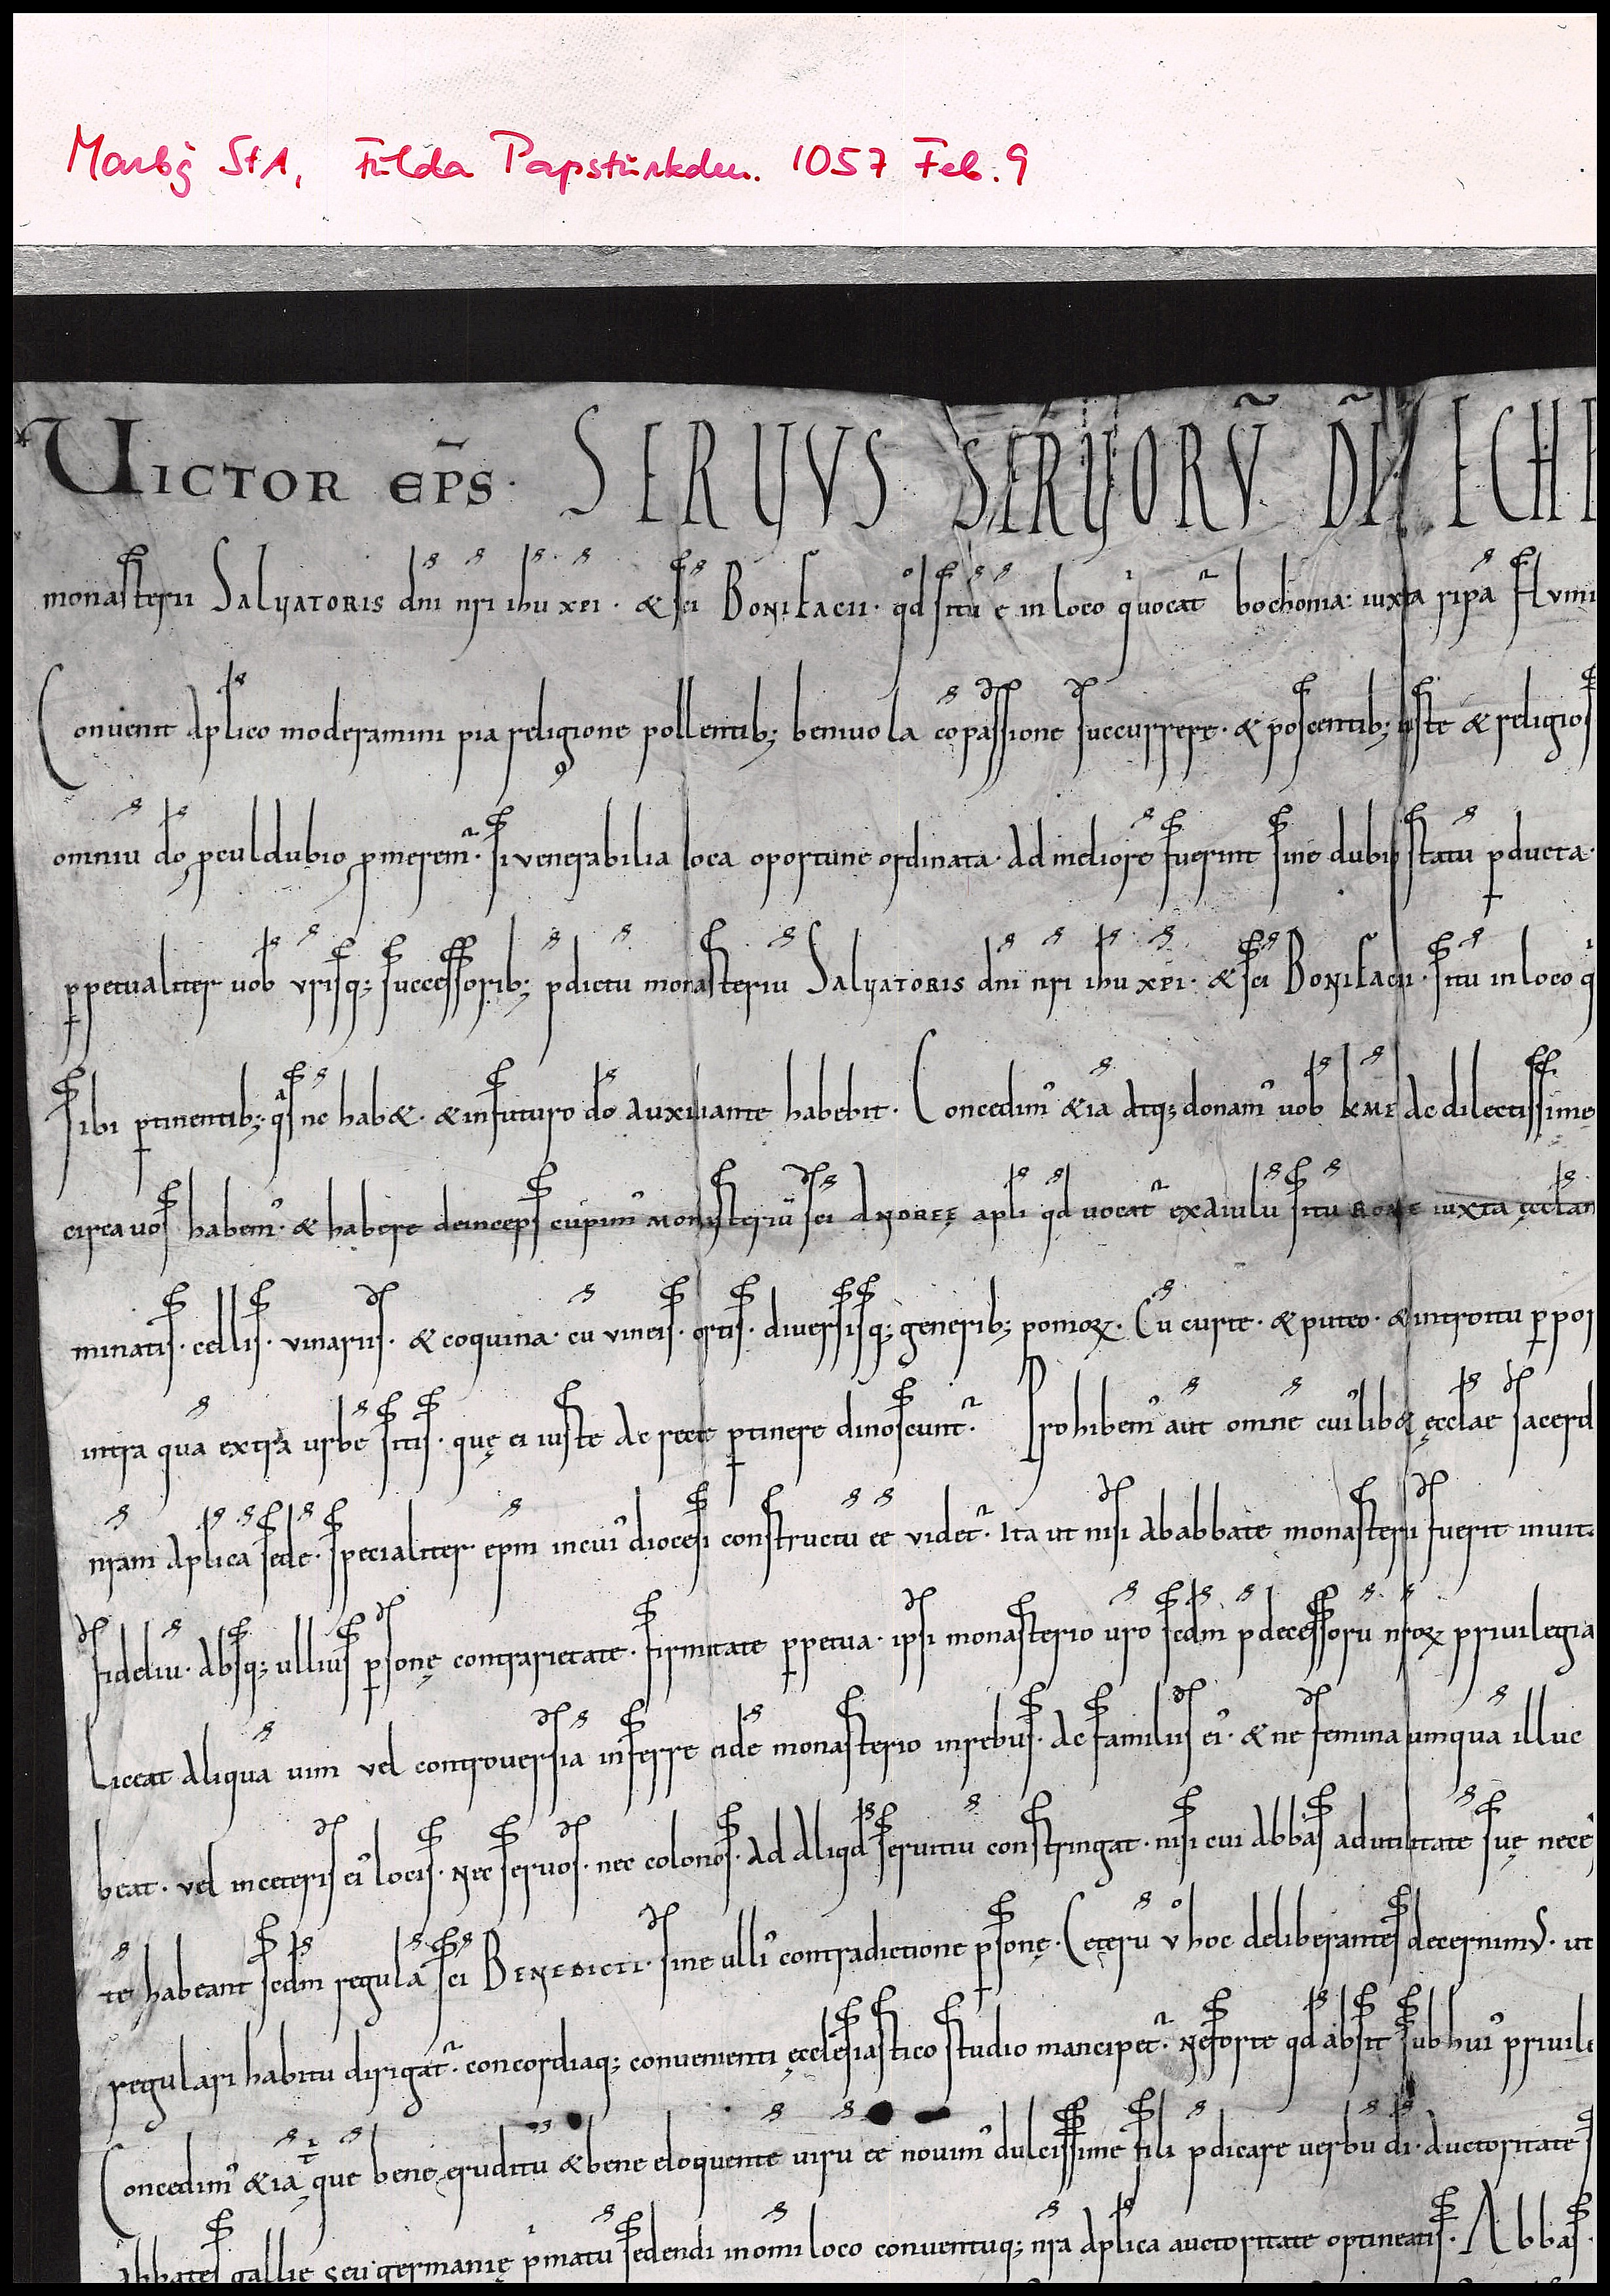 Marbg StA, Fulda Papsturkden. 1057 Feb. 9
UICTOR EP̄S· SERUUS SERUORŪ DĪ ECHE
monasterii SALUATORIS dn̄i nr̄i ihū xp̄i · & sc̄i BONIFACII · qd̄ sitū ē in loco q uocat̄ bochonia: iuxta ripā Flumi
Conuenit ap̄lico moderamini pia religione pollentib; beniuola cōpassione succurrere · & poscentib; iuste & religios
omniū dō p̱culdubio p̱merem̄ · si venerabilia loca oportune ordinata · ad meliorē fuerint sine dubio statū p̱ducta ·
p̱petualiter uob̄ vr̄isq; successorib; p̄dictū monasteriū SALUATORIS dn̄i nr̄i ihū xp̄i · & sc̄i BONIFACII · sitū in loco q
Sibi p̱tinentib; · q̄s nc̄ hab& · & in futuro dō auxiliante habebit · Concedim' &iā atq; donam' uob̄ km̄e ac dilectissime
circa uos habem' · & habere deinceps cupim' monasteriū sc̄i ANDREĘ ap̄li qd̄ uocat̄ exaiulū sitū ROME iuxta ęccl̄am
minatis · cellis · vinariis · & coquina · cū vineis · ortis · diuersisq; generib; pomoꝝ · Cū curte · & puteo · & introitu p̱ por
intra quā extra urbē sitis · quę ei iuste ac recte p̱tinere dinoscunt̄ Prohibem' aut̄ omnē cui'lib& ęccl̄ae sacerd
nr̄am ap̄licā sedē · specialiter ep̄m in cui' diocesi constructū eē videt̄ · Ita ut nisi ab abbate monasterii fuerit inuit
fideliū · absq; ullius p̱sonę contrarietate · firmitate p̱petua · ipsi monasterio vr̄o sc̄dm p̄decessorū nr̄oꝝ privilegia
Liceat aliquā uim vel controuersiā inferre eidē monasterio in rebus · ac familiis ei' · & ne femina umquā illuc
beat · vel in ceteris ei' locis · Nec seruos · nec colonos · ad aliqd̄ seruitiū constringat · nisi cui abbas ad utilitatē suę nece
tē habeant sc̄dm regulā sc̄i BENEDICTI · sine ulli' contradictione p̱sonę · Ceterū v° hoc deliberantes decernim' · ut
regulari habitu dirigat̄ · concordiaq; conuenienti ęcclesiastico studio mancipet̄ · Ne forte qd̄ absit sub hui' priuile
Concedim' &iā que bene eruditū & bene eloquentē uirū eē nouim' dulcissime fili p̄dicare uerbū dī · auctoritate
Abbates gallię seu germanię p̱matū sedendi in om̄i loco conuentuq; nr̄a ap̄lica auctoritate optineatis · Abbas ·